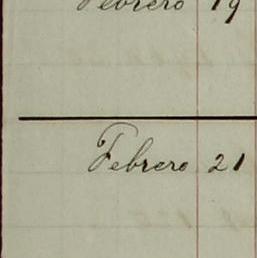 Febrero 19
Febrero 21